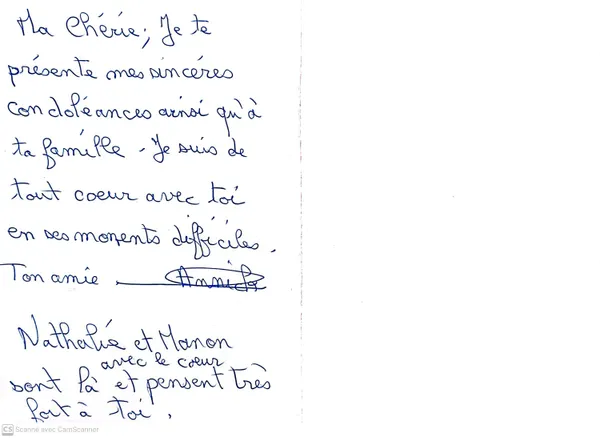 Ma Chérie, Je te
présente mes sincéres
condoléances ainsi qu'à
ta famille - Je suis de
tout coeur avec toi
en ses moments difficiles.
Ton amie
Nathalie et Manon
avec le coeur
sont là et pensent très
fort à toi.
CS Scanné avec CamScanner